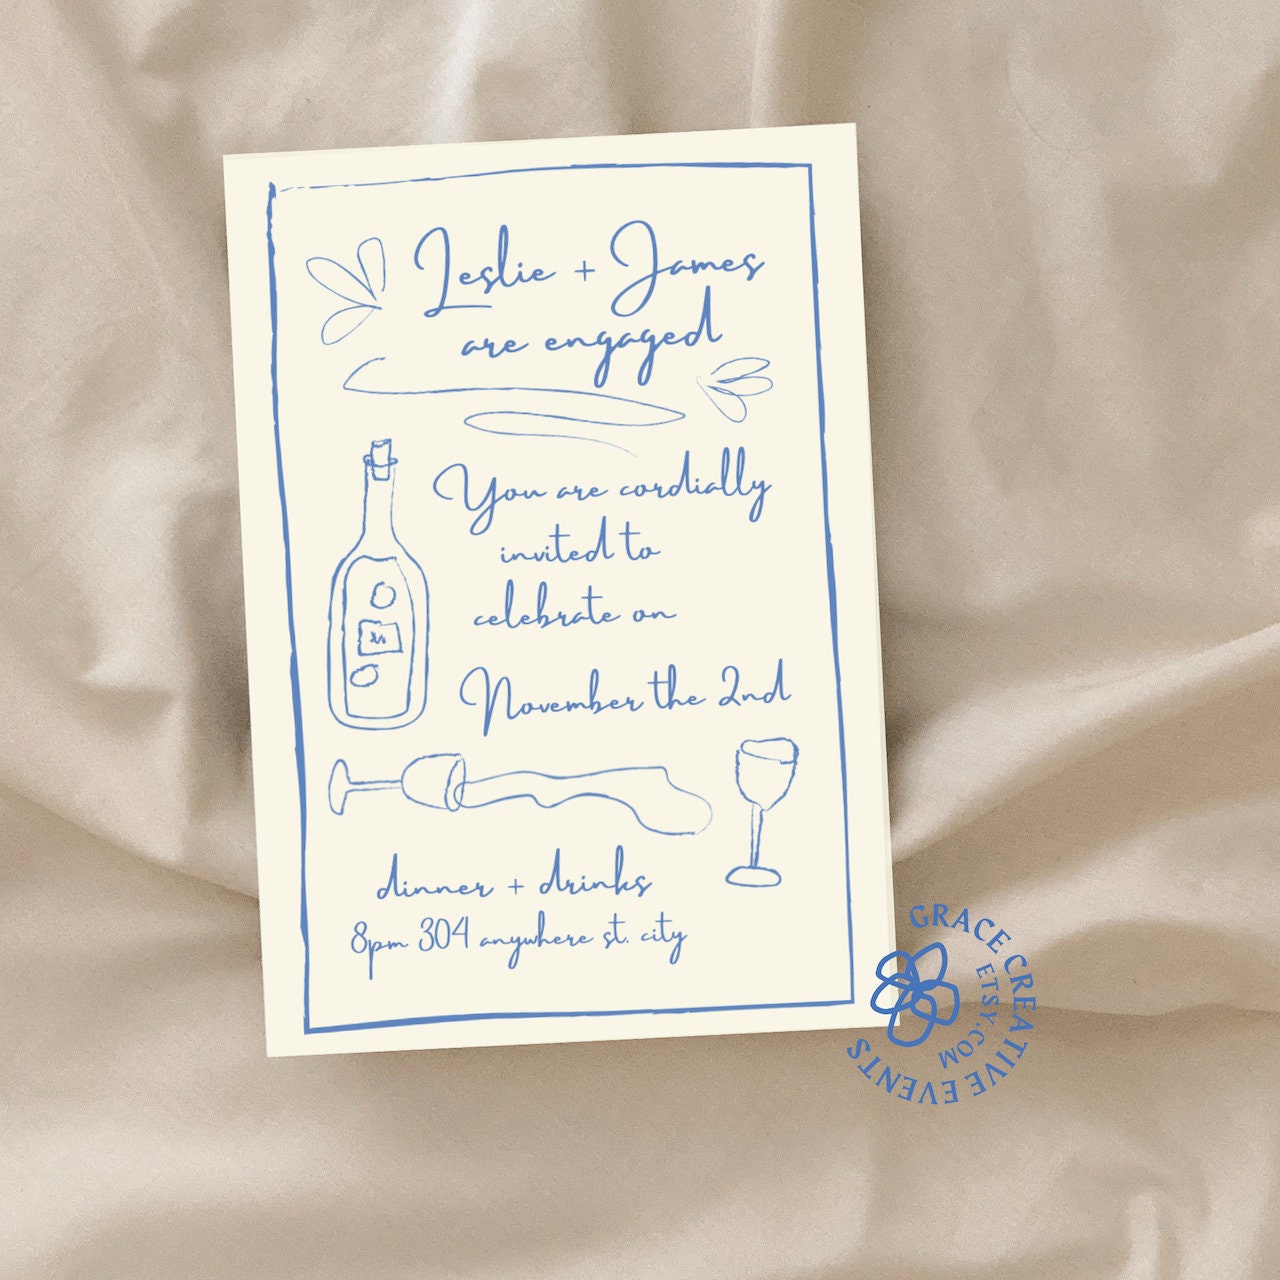 Leslie + James
are engaged
You are cordially
invited to
celebrate on
November the 2nd
dinner + drinks
8pm 304 anywhere st. city
GRACE CREATIVE EVENTS
ETSY.COM